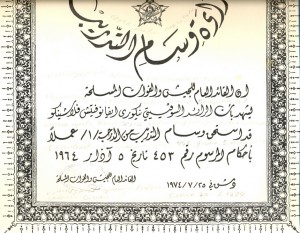 براءة وسام التدريب
إن القائد العام للجيش والقوات المسلحة
يشهد بأن الرائد السوفييتي
قد استحق وسام التدريب من الدرجة /١/ عملاً
بأحكام المرسوم رقم ٤٥٣ تاريخ ٥ آذار ١٩٦٤
دمشق في ٢٥/٧/١٩٧٤
القائد العام للجيش والقوات المسلحة